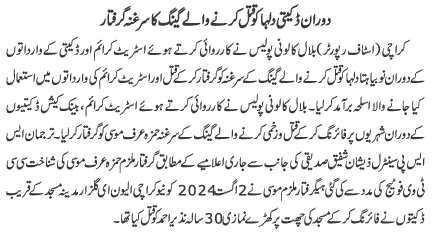 دوران ڈکیتی دلہا کو قتل کرنے والے گینگ کا سرغنہ گرفتار
کراچی (اسٹاف رپورٹر) بلال کالونی پولیس نے کارروائی کرتے ہوئے اسٹریٹ کرائم اور ڈکیتی کے وارداتوں
کے دوران نوبیاہتا دلہا کو قتل کرنے والے گینگ کے سرغنہ کو گرفتار کر کے قتل اور اسٹریٹ کرائم کی وارداتوں میں استعمال
کیا جانے والا اسلحہ برآمد کر لیا۔ بلال کالونی پولیس نے کارروائی کرتے ہوئے اسٹریٹ کرائم، بینک کیش ڈکیتیوں
کے دوران شہریوں پر فائرنگ کر کے قتل و زخمی کرنے والے گینگ کے سرغنہ حمزہ عرف موسی کو گرفتار کر لیا۔ ترجمان ایس
ایس پی سینٹرل ذیشان شفیق صدیقی کی جانب سے جاری اعلامیے کے مطابق گرفتار ملزم حمزہ عرف موسی کی شناخت سی سی
ٹی وی فوٹیج کی مدد سے کی گئی ہیگرفتار ملزم موسی نے 2 اگست 2024 کو نیو کراچی الیون ای گلزار مدینہ مسجد کے قریب
ڈکیتوں نے فائرنگ کر کے مسجد کی چھت پر کھڑے نمازی 30 سالہ نذیر احمد کو قتل کیا تھا۔